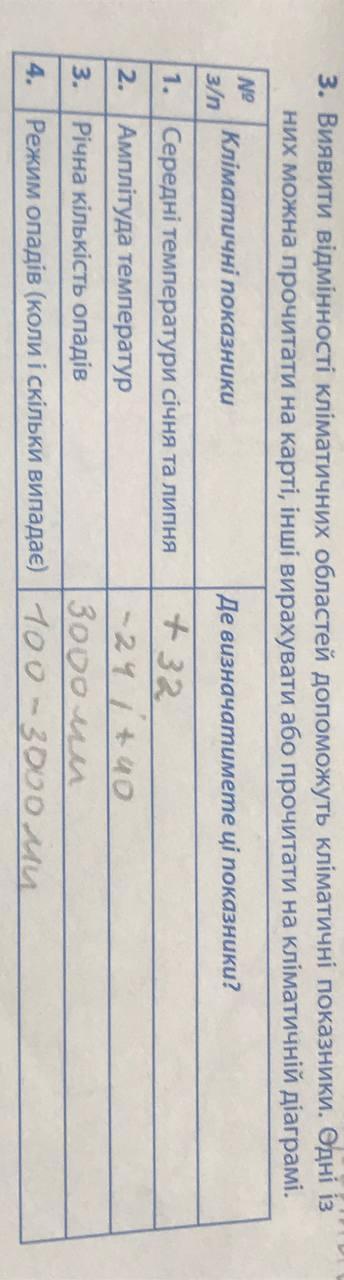 3. Виявити відмінності кліматичних областей допоможуть кліматичні показники. Одні із
них можна прочитати на карті, інші вирахувати або прочитати на кліматичній діаграмі.
№ з/п Кліматичні показники Де визначатимете ці показники?
1. Середні температури січня та липня +32
2. Амплітуда температур -24 і +40
3. Річна кількість опадів 3000 мм
4. Режим опадів (коли і скільки випадає) 100-3000 мм